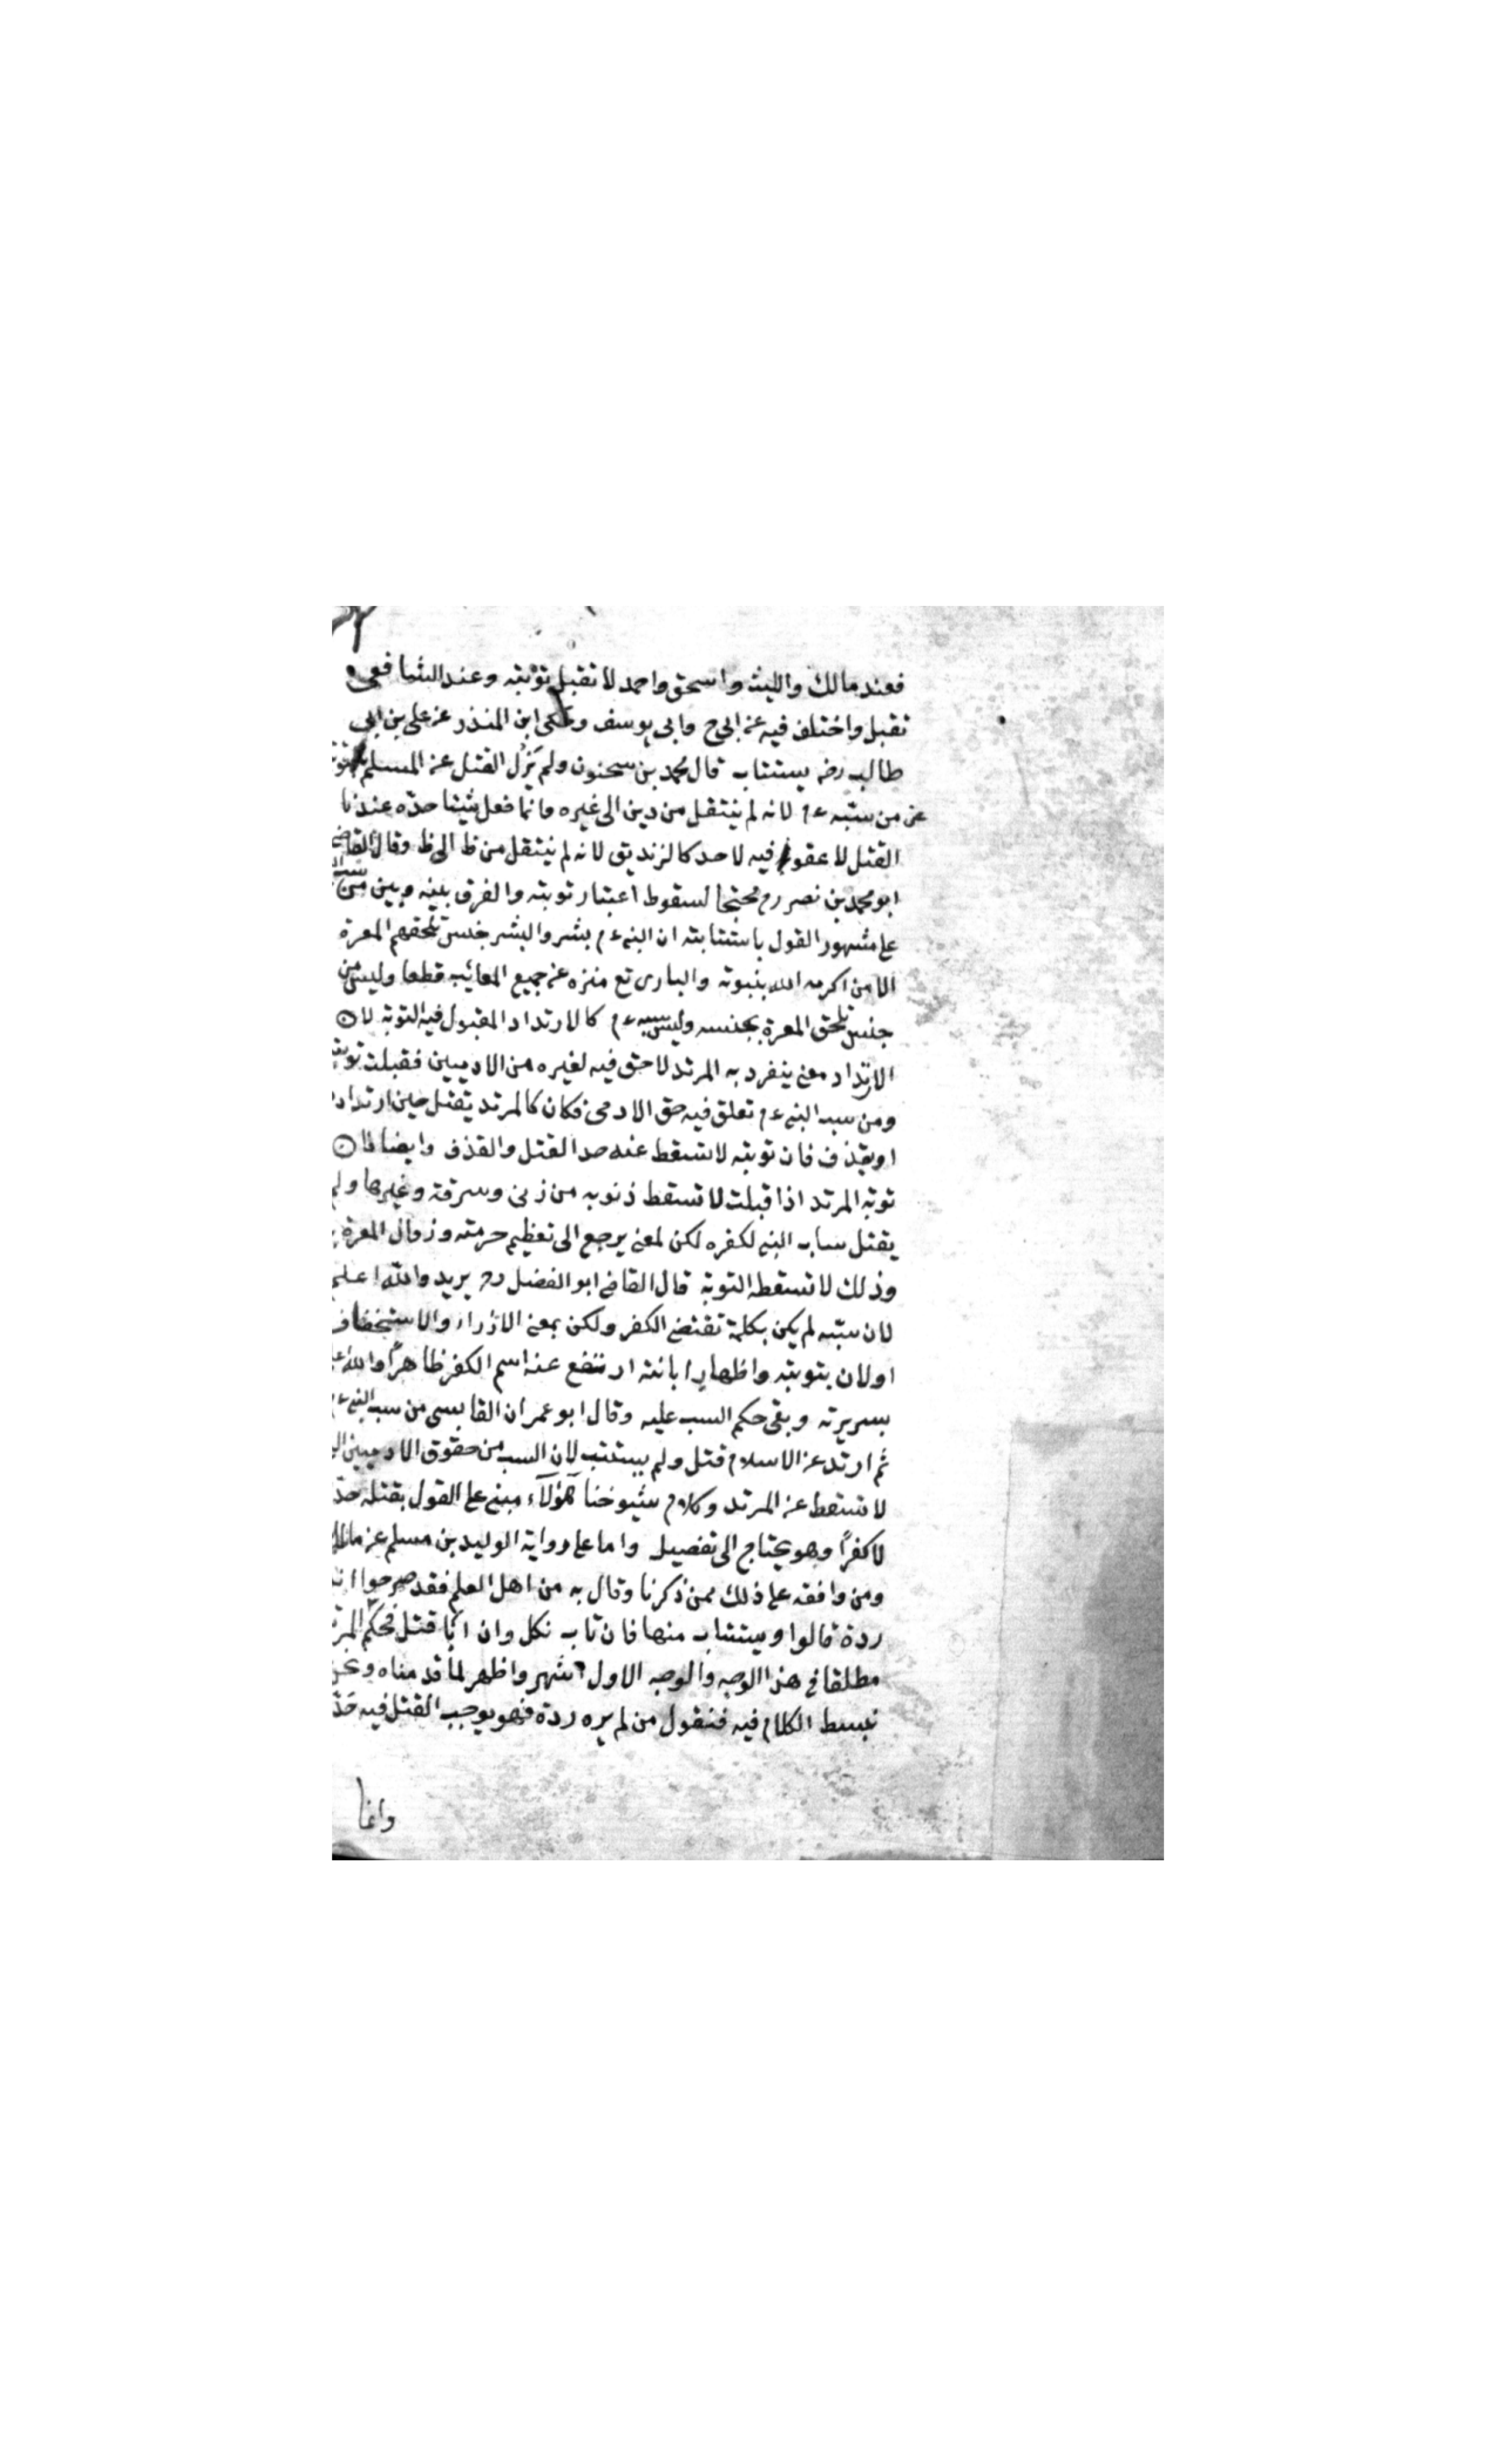 فعند مالك والليث واسحق واحمد لا تقبل توبته وعند الشافعي
تقبل واختلف فيه عن ابي ح وابي يوسف وحكى ابن المنذر عن علي بن ابي
طالب رضه يستتاب قال محمد بن سحنون ولم يَزُل القتل عن المسلم
عن من سبّه ءم لانه لم ينتقل من دين الى غيره وانما فعل شيئا حدّه عندنا
القتل لا عفو فيه لاحد كالزنديق لانه لم ينتقل من ظ الى ظ وقال القاضي
ابو محمد بن نصر رح محتجا لسقوط اعتبار توبته والفرق بينه وبين من سب
على مشهور القول باستتابته ان النبي ءم بشر والبشر جنس تلحقهم المعرة
الا من اكرمه الله بنبوته والباري تع منزه عن جميع المعائب قطعا وليس من
جنس تلحق المعرة بجنسه وليس سبه ءم كالارتداد المقبول فيه التوبة لان
الارتداد معنى ينفرد به المرتد لا حق فيه لغيره من الادميين فقبلت توبته
ومن سب النبي ءم تعلق فيه حق الادمي فكان كالمرتد يقتل حين ارتداده
او يقذف فان توبته لا تسقط عنه حد القتل والقذف وايضا فان
توبة المرتد اذا قبلت لا تسقط ذنوبه من زنى وسرقة وغيرها ولم
يقتل ساب النبي لكفره لكن لمعنى يرجع الى تعظيم حرمته وزوال المعرة
وذلك لا تسقطه التوبة قال القاضي ابو الفضل رح يريد والله اعلم
لان سبّه لم يكن بكلمة تقتضي الكفر ولكن بمعنى الازراء والاستخفاف
او لان بتوبته واظهار انابته ارتفع عنه اسم الكفر ظاهرًا والله
بسريرته وبقي حكم السب عليه وقال ابو عمران القابسي من سب النبي ءم
ثم ارتد عن الاسلام قتل ولم يستتب لان السب من حقوق الادميين
لا تسقط عن المرتد وكلام شيوخنا هؤلآء مبني على القول بقتله حدّ
لا كفرًا وهو يحتاج الى تفصيل واما على رواية الوليد بن مسلم عن مالك
ومن وافقه على ذلك ممن ذكرنا وقال به من اهل العلم فقد صرحوا انه
ردة قالوا ويستتاب منها فان تاب نكل وان ابى قتل فحكم
مطلقا في هذا الوجه والوجه الاول اشهر واظهر لما قدمناه ونحن
نبسط الكلام فيه فنقول من لم يره ردة فهو يوجب القتل فيه حدّ
وانما